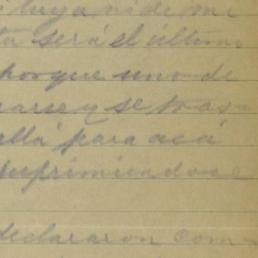 tuya ni de mi
será el último
porque uno de
y se
allá para acá
suprimiendose
declararon com